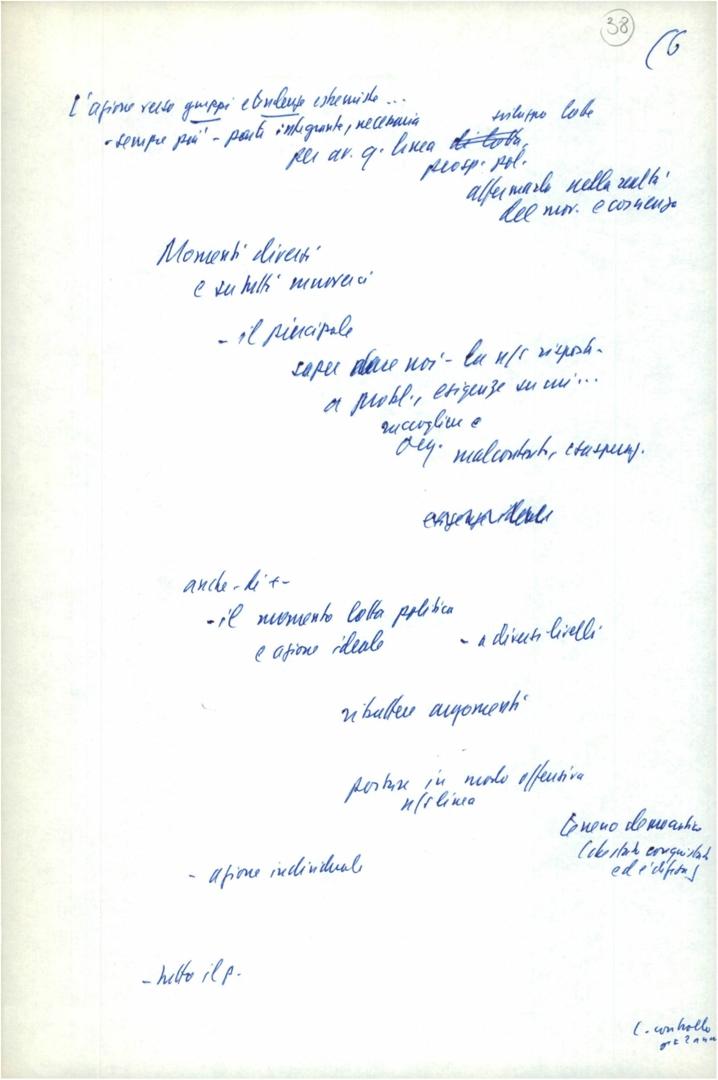 38
(6
L'azione verso gruppi e tendenze estremiste...
- sempre più - parte integrante, necessaria
sviluppo lotte
per av. q. linea di lotta,
prosp. pol.
affermarla nella realtà
del mov. e coscienza
Momenti diversi
e su tutti muoverci
- il principale
saper dare noi - la n/s risposta
a probl., esigenze su cui...
raccogliere e
org. malcontento, esasperaz.
esigenze ideali
anche - di + -
- il momento lotta politica
e azione ideale - a diversi livelli
ributtere argomenti
portare in modo offensivo
n/s linea
terreno democratico
(che è stato conquistato
ed è difeso)
- azione individuale
- tutto il p.
controllo